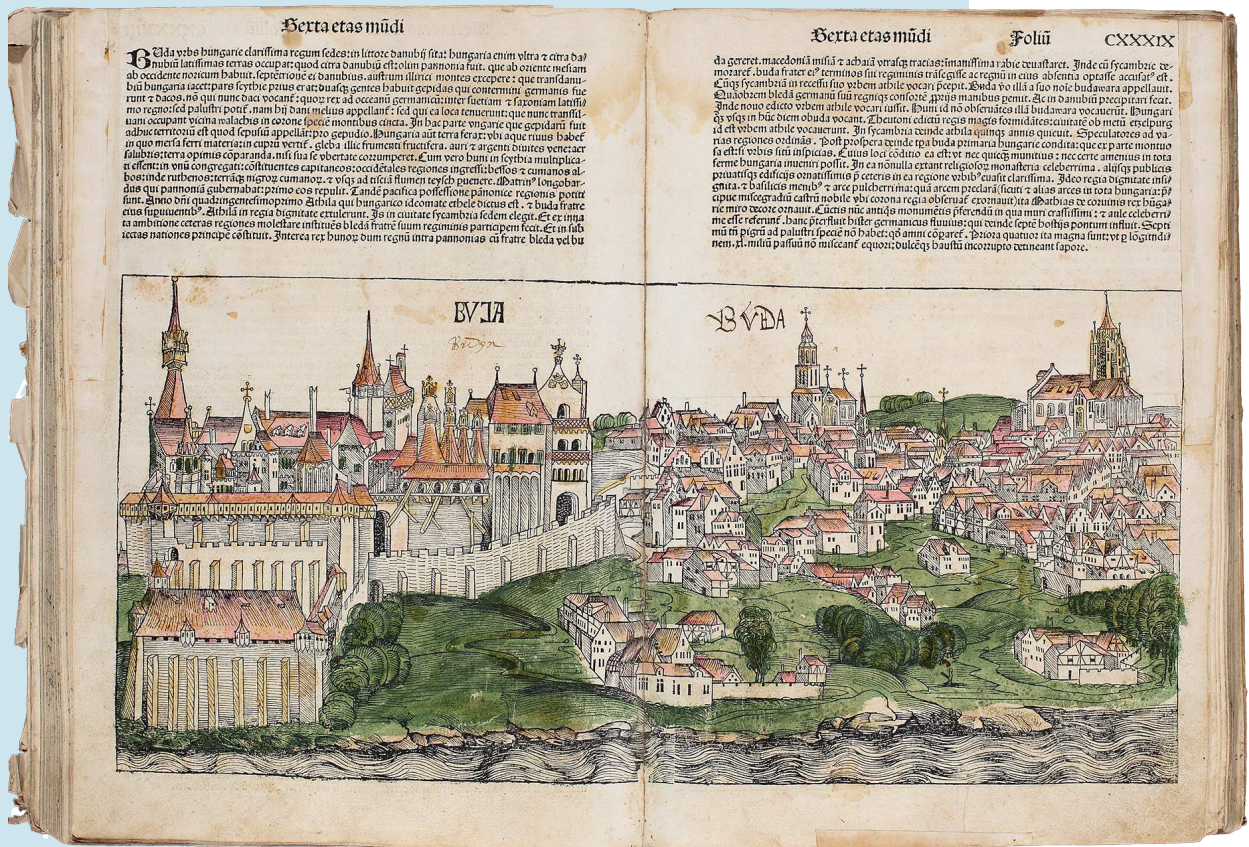 Sexta etas mũdi
BUda vrbs hungarie clarissima regum sedes: in littore danubij sita: hungaria enim vltra ⁊ citra da/
nubiũ latissimas terras occupat: quod citra danubiũ est: olim pannonia fuit. que ab oriente mesiam
ab occidente noricum habuit. septẽtrionẽ ei danubius. austrum illirici montes excepere: que transdanu-
biũ hungaria iacet: pars scythie prius erat: duasqʒ gentes habuit gepidas qui contermini germanis fue
runt ⁊ dacos. nõ qui nunc daci vocant᷑: quoꝝ rex ad occanũ germanicũ: inter suetiam ⁊ saxoniam latissi/
mo regno: sed palustri potit᷑. nam hij dani melius appellant᷑: sed qui ea loca tenuerunt: que nunc transsil-
uani occupant vicina walachis in corone speciẽ montibus cincta. In hac parte vngarie que gepidarũ fuit
adhuc territoriũ est quod sepusiũ appellãt: pro gepudio. Hungaria aũt terra ferax: vbi aque riuus habet᷑
in quo mersa ferri materia: in cuprũ vertit᷑. gleba illic frumenti fructifera. auri ⁊ argenti diuites vene: aer
salubris: terra opimis cõparanda. nisi sua se vbertate corrumperet. Cum vero huni in scythia multiplica-
ti essent: in vnũ congregati: cõstituentes capitaneos: occidẽtales regiones ingressi: bessos ⁊ cumanos al-
bos: inde ruthenos: terrãqʒ nigroꝝ cumanoꝝ. ⁊ vsqʒ ad tisciã flumen teysch puenere. Matrin᷒ longobar-
dus qui pannoniã gubernabat: primo eos repulit. Tandẽ pacifica possessione pãnonice regionis potiti
sunt. Anno dñi quadringentesimoprimo Athila qui hungarico ideomate ethele dictus est. ⁊ buda fratre
eius supuiuentib᷒. Athilã in regia dignitate extulerunt. Is in ciuitate sycambria sedem elegit. Et ex inna
ta ambitione ceteras regiones molestare instituẽs bledã fratrẽ suum regiminis participem fecit. Et in sub
iectas nationes principẽ cõstituit. Interea rex hunoꝝ dum regnũ intra pannonias cũ fratre bleda vel bu
Sexta etas mũdi Foliũ CXXXIX
da gereret. macedoniã misiã ⁊ achaiã vtrasqʒ tracias: imanissima rabie deuastaret. Inde cũ sycambrie de-
moraret᷑. buda frater ei᷒ terminos sui regiminis trãsegisse ac regnũ in eius absentia optasse accusat᷒ est.
Cũqʒ sycambriã in recessu suo vrbem athile vocari p̃cepit. Buda ṽo illã a suo noĩe budawara appellauit.
Quãobrem bledã germanũ suũ regniqʒ consortẽ xp̃rijs manibus pemit. Ac in danubiũ precipitari fecat.
Inde nouo edicto vrbem athile vocari iussit. Huni id nõ obseruãtes illã budawara vocauerũt. Hungari
qʒ vsqʒ in hũc diem obuda vocant. Theutoni edictũ regis magis formidãtes: ciuitatẽ ob metũ etzelpurg
id est vrbem athile vocauerunt. In sycambria deinde athila quinqʒ annis quieuit. Speculatores ad va-
rias regiones ordinãs. Post prospera deinde tp̃a buda primaria hungarie condita: que ex parte montuo
sa est: si vrbis sitũ inspicias. Cuius loci cõditio ea est: vt nec quicqʒ munitius: nec certe amenius in tota
ferme hungaria inueniri possit. In ea nõnulla extant religiosoꝝ monasteria celeberrima. alijsqʒ publicis
priuatisqʒ edificijs ornatissimis p̃ ceteris in ea regione vrbib᷒ euasit clarissima. Ideo regia dignitate insi
gnita. ⁊ basilicis menib᷒ ⁊ arce pulcherrima: quã arcem preclarã (sicuti ⁊ alias arces in tota hungaria: p̃
cipue miscegradiũ castrũ nobile vbi corona regia obseruat᷑ exornauit) ita Mathias de coruinis rex hũga/
rie miro decore ornauit. Cũctis nũc antiqʒ monumẽtis p̃ferendã in qua muri crassissimi: ⁊ aule celeberri/
me esse referunt᷑. hanc p̃terfluit hister germanicus fluuius: qui deinde septẽ hostijs pontum influit. Septi
mũ tñ pigrũ ad palustri speciẽ nõ habet: qđ amni cõparet᷑. Priora quatuor ita magna sunt: vt p̱ lõgitudi/
nem .xl. miliũ passuũ nõ misceant᷑ equori: dulcẽqʒ haustũ incorrupto detineant sapore.
BVJA
BVDA